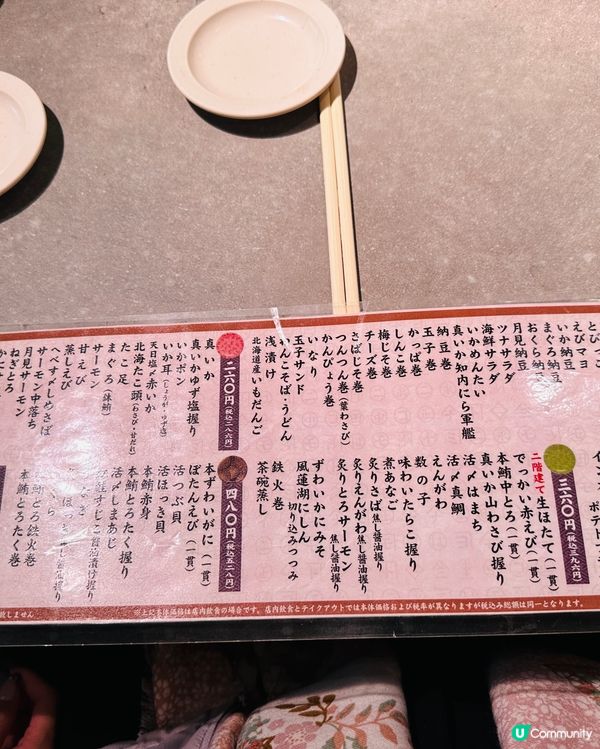 とびっこ
えびマヨ
いか納豆
まぐろ納豆
おくら納豆
月見納豆
ツナサラダ
海鮮サラダ
いかめんたい
真いか知内にら軍艦
納豆巻
玉子巻
かっぱ巻
しんこ巻
梅じそ巻
チーズ巻
さばじそ巻
つんつん巻（葉わさび）
かんぴょう巻
いなり
玉子サンド
んこそば・うどん
浅漬け
北海道産いもだんご
二六〇円（税込二八六円）
真いか
真いかゆず塩握り
いかポン
いか耳（しょうが・ゆず塩）
天日塩〆赤いか
北海たこ頭（わさび・甘だれ）
たこ足
まぐろ（鉢鮪）
サーモン
甘えび
蒸しえび
へべす〆しめさば
サーモン中落ち
月見サーモン
ねぎとろ
三六〇円（税込三九六円）
二階建て生ほたて（一貫）
でっかい赤えび（一貫）
本鮪中とろ（一貫）
真いか山わさび握り
活〆はまち
活〆真鯛
えんがわ
数の子
味わいたらこ握り
煮あなご
炙りさば焦し醤油握り
炙りえんがわ焦し醤油握り
炙りとろサーモン焦し醤油握り
ずわいかにみそ
風蓮湖にしん切り込みつつみ
鉄火巻
茶碗蒸し
四八〇円（税込五二八円）
本ずわいがに（一貫）
ぼたんえび（一貫）
活つぶ貝
活ほっき貝
本鮪赤身
本鮪とろたく握り
活〆しまあじ
すじこ醤油漬け握り
本鮪とろ鉄火巻
本鮪とろたく巻
※上記本体価格は店内飲食の場合です。店内飲食とテイクアウトでは本体価格および税率が異なりますが税込み総額は同一となります。
致しません
U Community